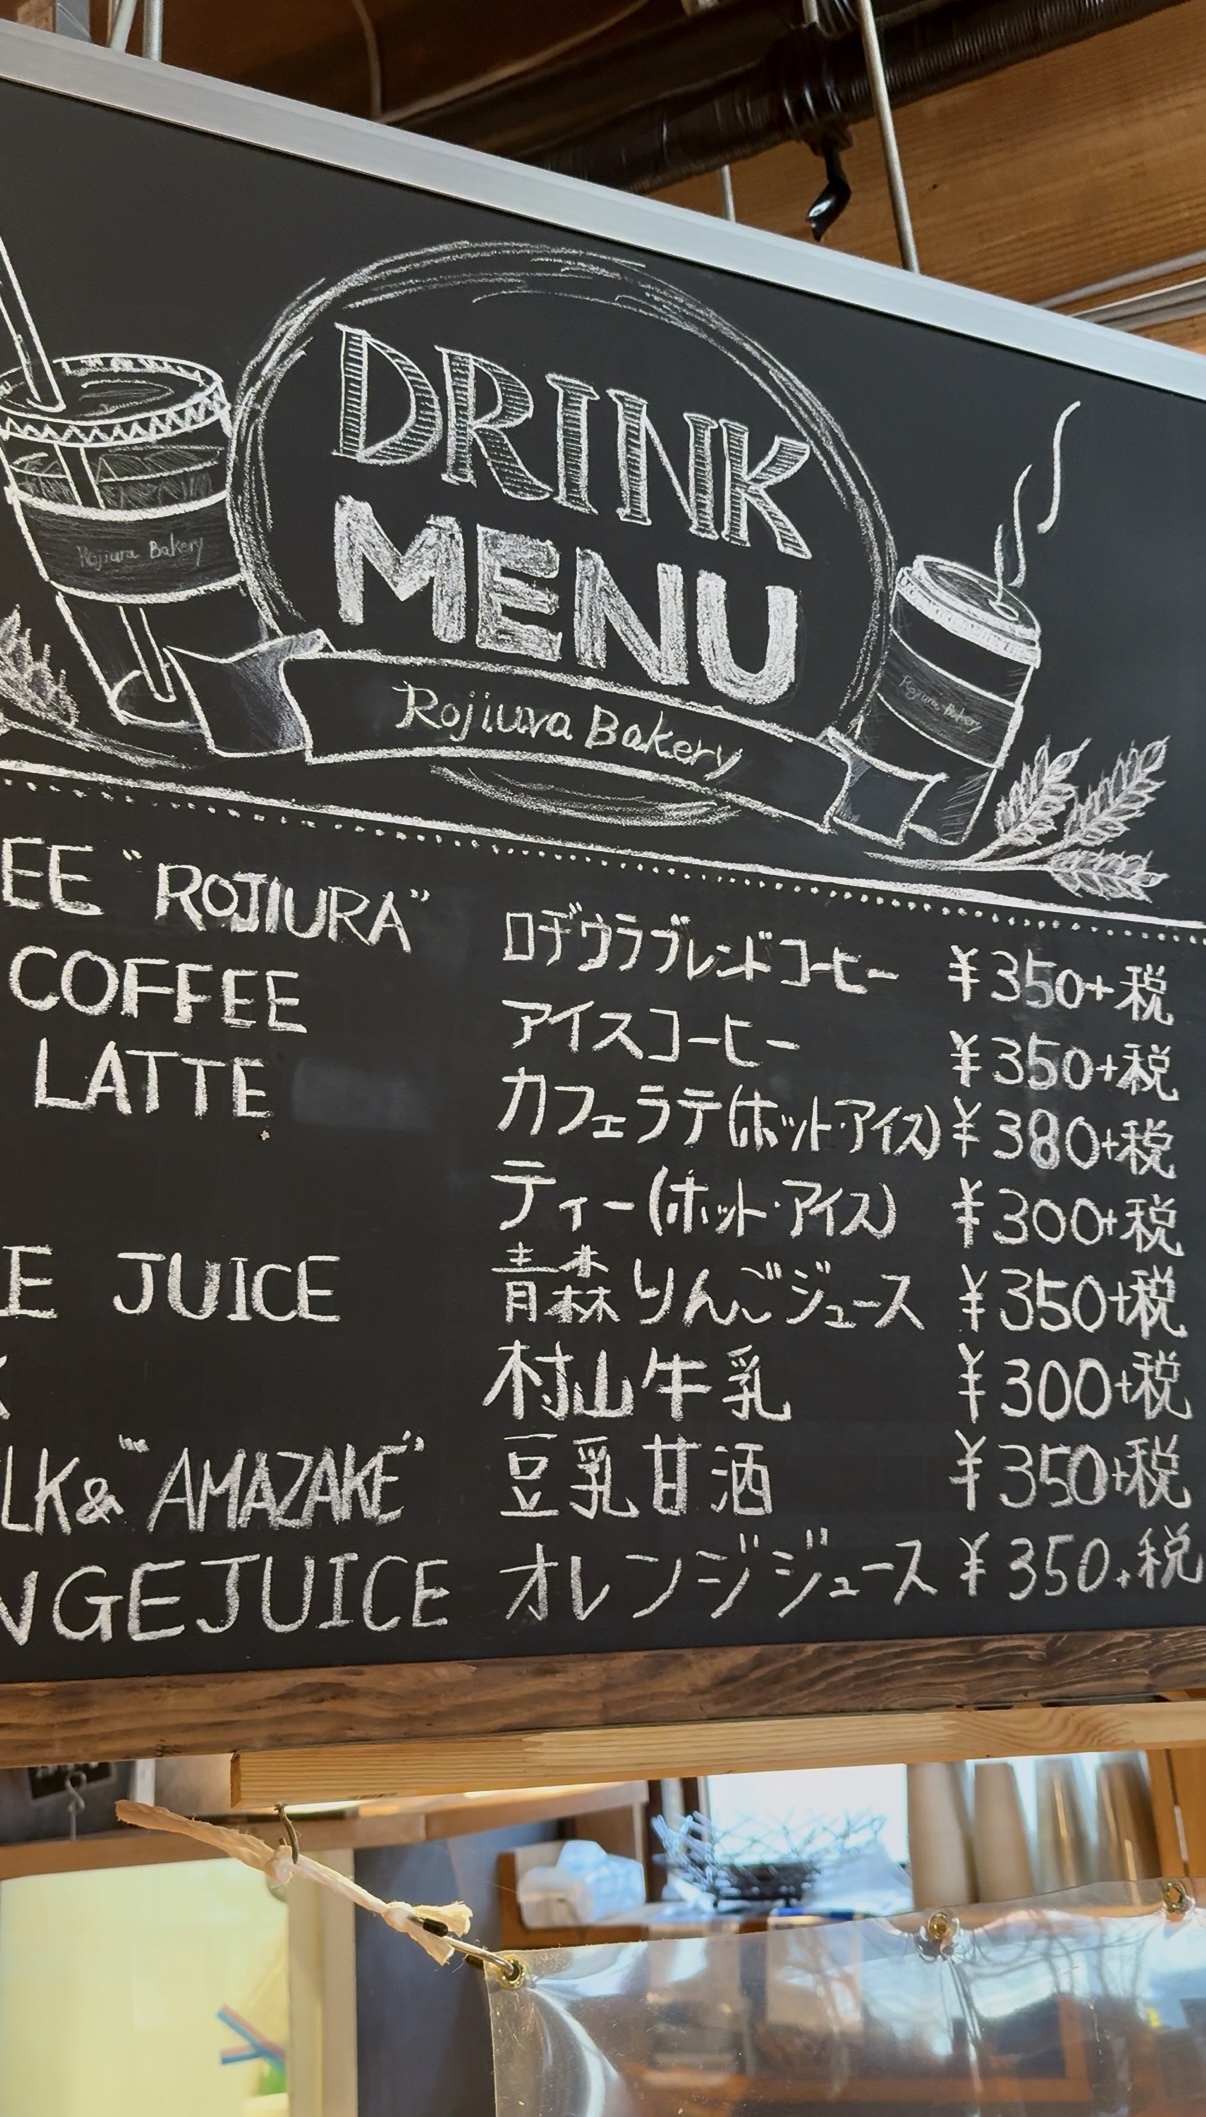 DRINK
MENU
Rojiura Bakery
Rojiura Bakery
Rojiura Bakery
EE "ROJIURA" ロヂウラブレンドコーヒー ¥350+税
COFFEE アイスコーヒー ¥350+税
LATTE カフェラテ(ホット・アイス) ¥380+税
ティー(ホット・アイス) ¥300+税
E JUICE 青森りんごジュース ¥350+税
K 村山牛乳 ¥300+税
LK& "AMAZAKE" 豆乳甘酒 ¥350+税
NGEJUICE オレンジジュース ¥350+税